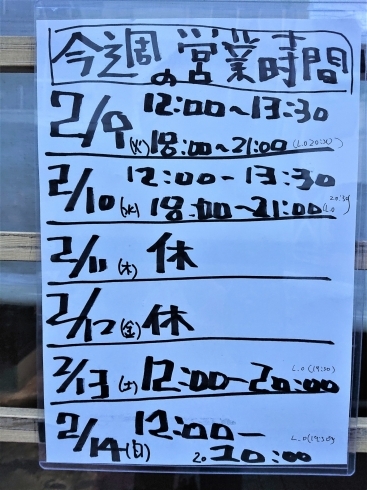 今週の営業時間
2/9(火) 12:00~13:30
18:00~21:00 (L.O 20:30)
2/10(水) 12:00-13:30
18:00~21:00 (L.O 20:30)
2/11(木) 休
2/12(金) 休
2/13(土) 12:00-20:00 L.O(19:30)
2/14(日) 12:00-
20:00 L.O(19:30)